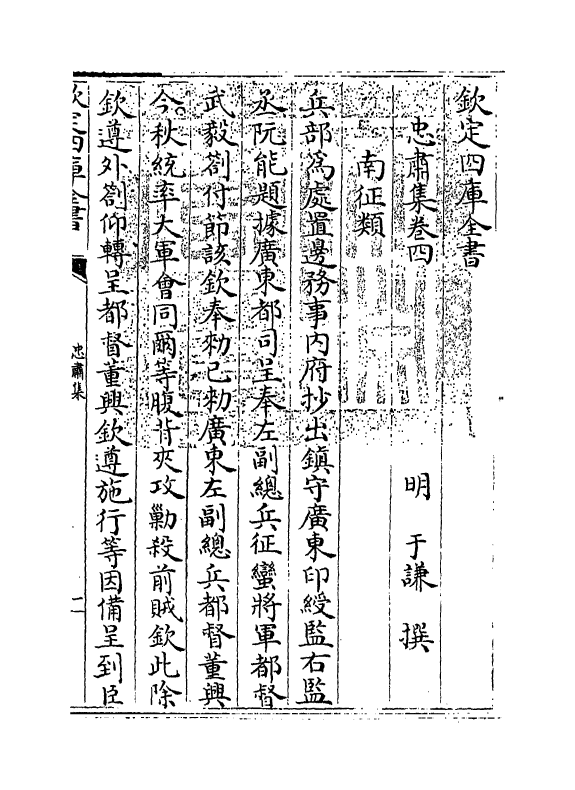 欽定四庫全書
忠肅集卷四
明 于謙 撰
南征類
兵部為處置邊務事内府抄出鎮守廣東印綬監右監
丞阮能題據廣東都司呈奉左副總兵征蠻將軍都督
武毅劄付節該欽奉勑已勑廣東左副總兵都督董興
今秋統率大軍會同爾等腹背夾攻勦殺前賊欽此除
欽遵外劄仰轉呈都督董興欽遵施行等因備呈到臣
欽定四庫全書
忠肅集
一